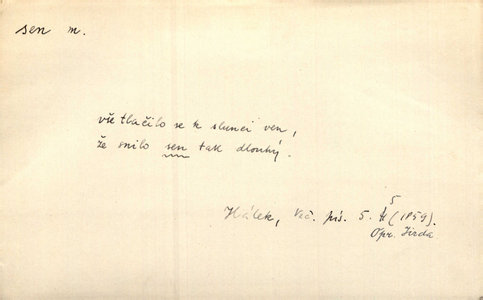 sen m.
vše tlačilo se k slunci ven,
že snilo sen tak dlouhý.
5
Hálek, Več. pís. 5. (1859).
Opr. Jirda